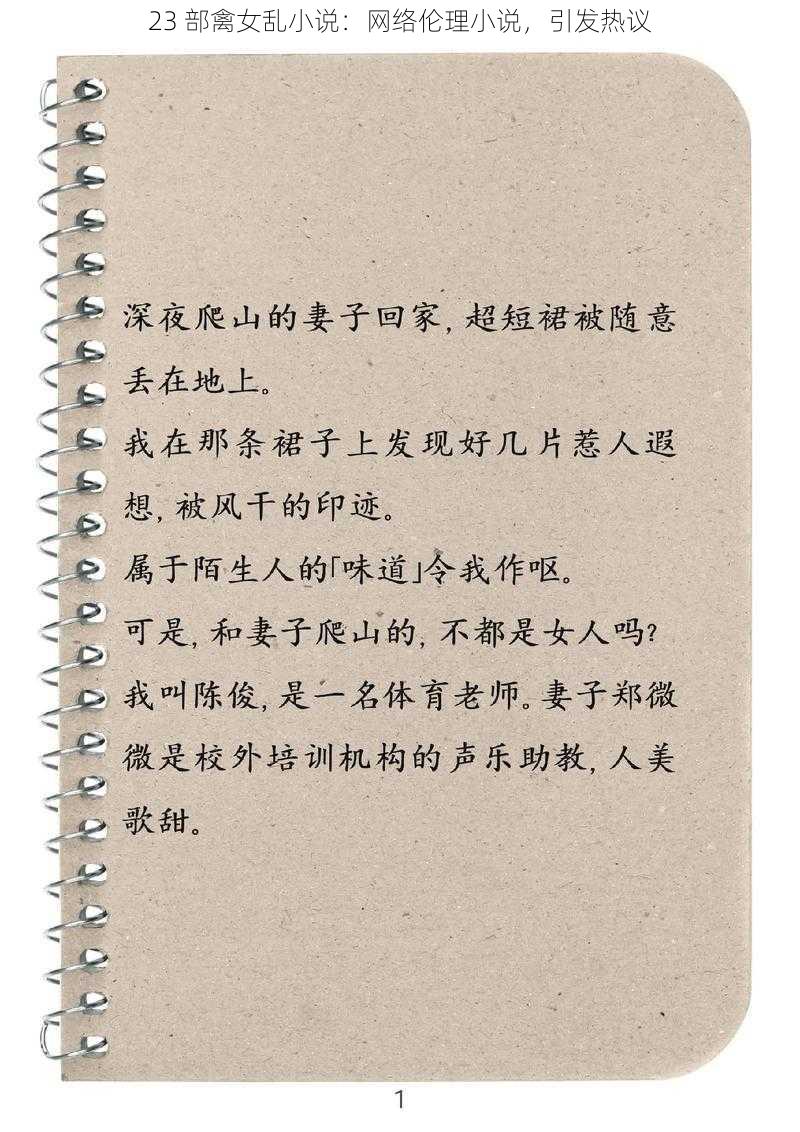 23 部禽女乱小说：网络伦理小说，引发热议
深夜爬山的妻子回家，超短裙被随意
丢在地上。
我在那条裙子上发现好几片惹人遐
想，被风干的印迹。
属于陌生人的「味道」令我作呕。
可是，和妻子爬山的，不都是女人吗？
我叫陈俊，是一名体育老师。妻子郑微
微是校外培训机构的声乐助教，人美
歌甜。
1